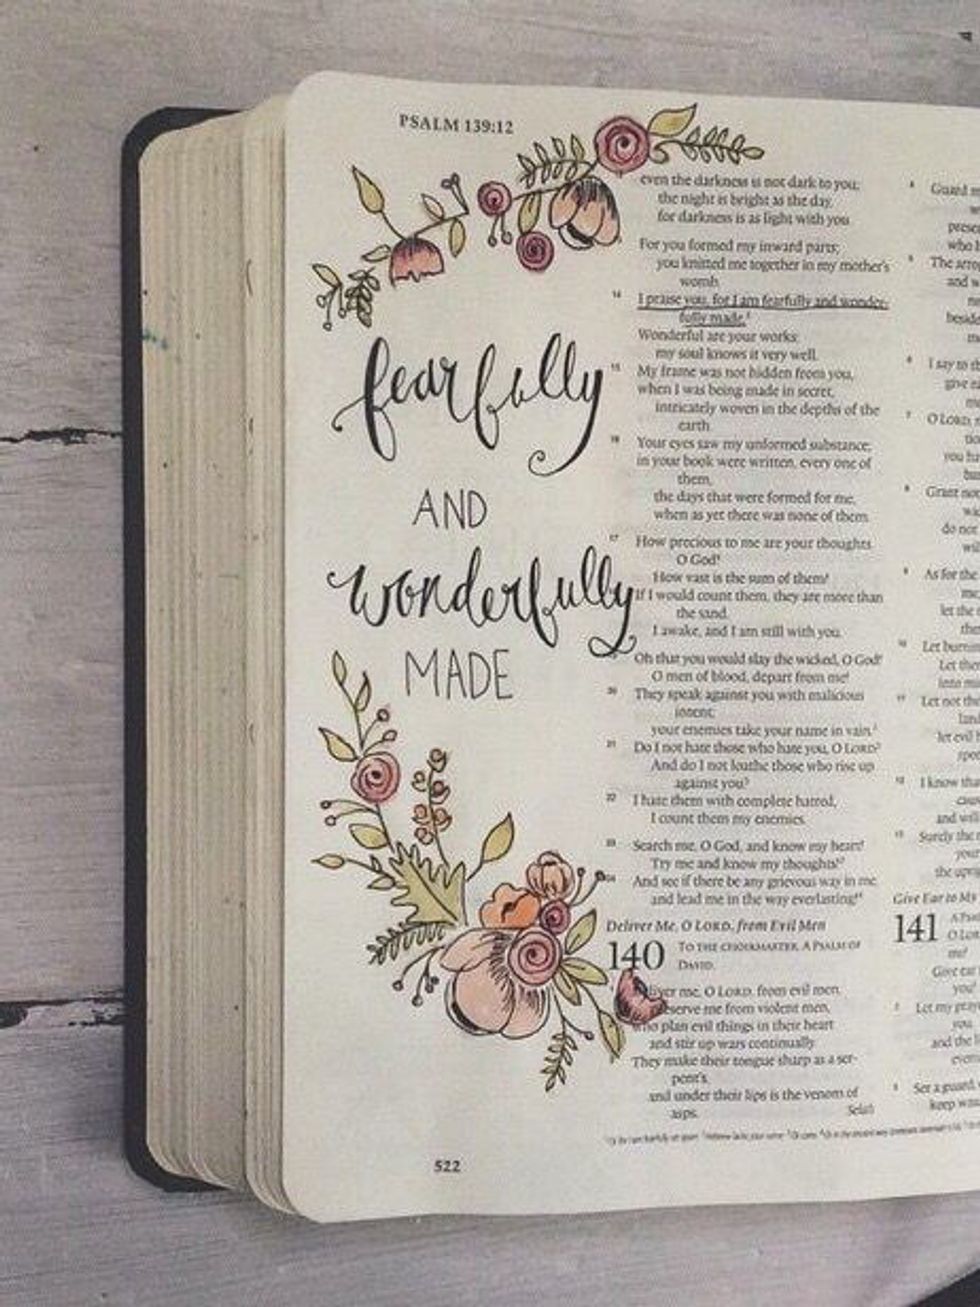 PSALM 139:12
fearfully
AND
wonderfully
MADE
even the darkness is not dark to you;
the night is bright as the day,
for darkness is as light with you.
For you formed my inward parts;
you knitted me together in my mother's
womb.
14 I praise you, for I am fearfully and wonder-
fully made.
Wonderful are your works;
my soul knows it very well.
15 My frame was not hidden from you,
when I was being made in secret,
intricately woven in the depths of the
earth.
16 Your eyes saw my unformed substance;
in your book were written, every one of
them,
the days that were formed for me,
when as yet there was none of them.
17 How precious to me are your thoughts,
O God!
How vast is the sum of them!
If I would count them, they are more than
the sand.
I awake, and I am still with you.
Oh that you would slay the wicked, O God!
O men of blood, depart from me!
20 They speak against you with malicious
intent;
your enemies take your name in vain.
21 Do I not hate those who hate you, O LORD?
And do I not loathe those who rise up
against you?
22 I hate them with complete hatred;
I count them my enemies.
23 Search me, O God, and know my heart!
Try me and know my thoughts!
24 And see if there be any grievous way in me,
and lead me in the way everlasting!
Deliver Me, O LORD, from Evil Men
140 TO THE CHOIRMASTER. A PSALM OF
DAVID.
me, O LORD, from evil men;
me from violent men,
who plan evil things in their heart
and stir up wars continually.
They make their tongue sharp as a ser-
pent's,
and under their lips is the venom of
asps. Selah
522
4 Guard
5 The
and
6 I say to
give
7 O LORD,
you
8 Grant
do not
9 As for the
let the
10 Let
Let
into
11 Let not the
let evil
12 I know
and will
13 Surely the
Give Ear to My
141
O LORD
me!
Give ear
you!
2 Let my
you
and the
3 Set a guard
keep